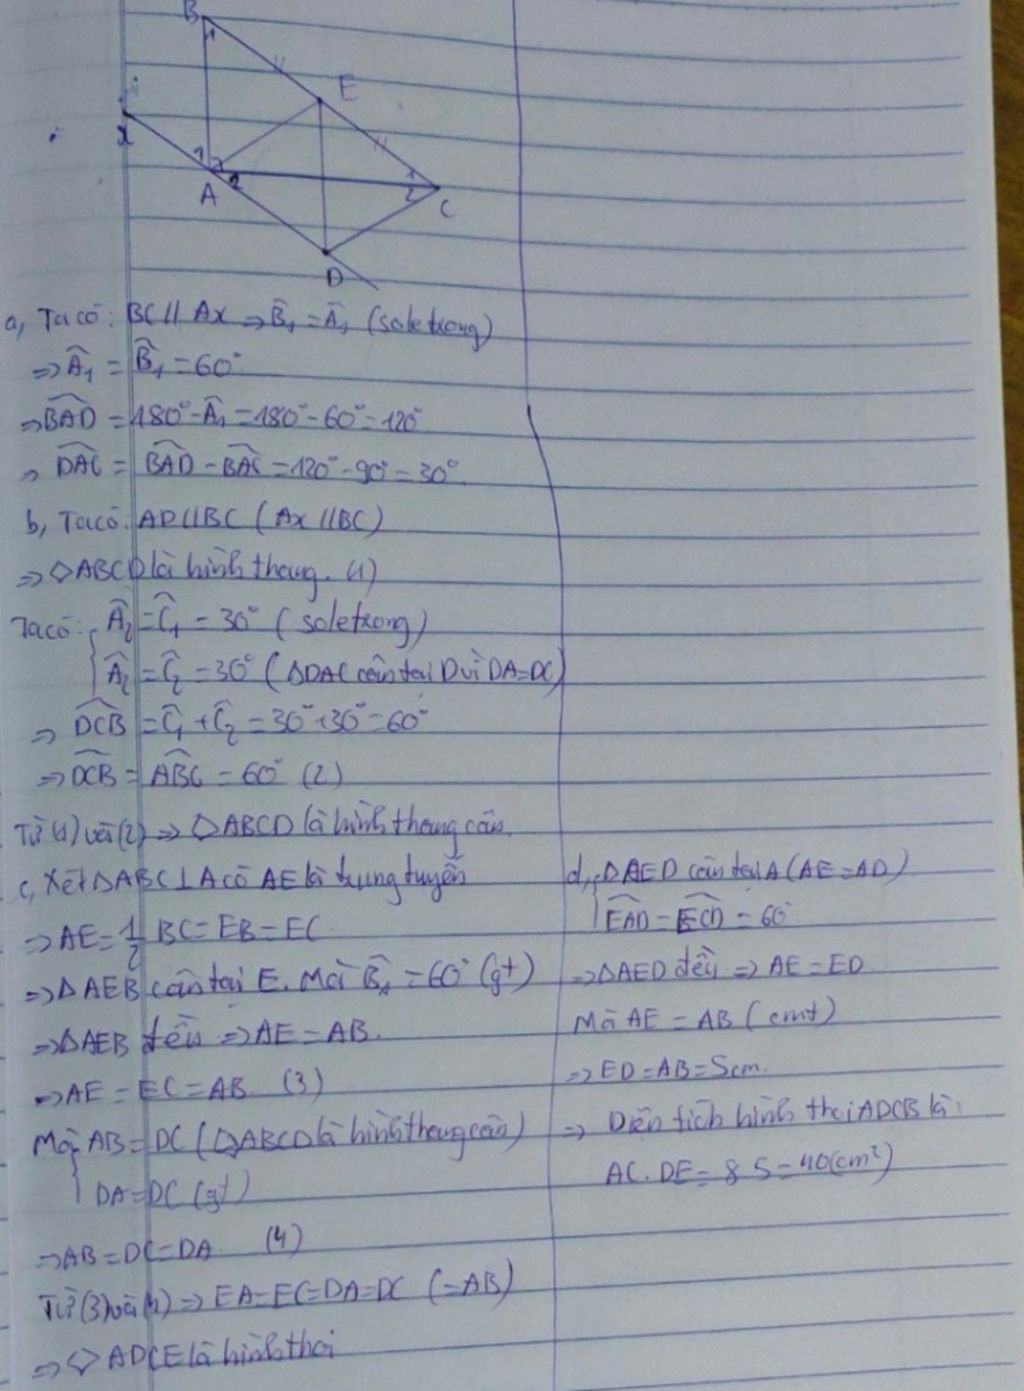 B
1
E
x
1
3
A
2
1
2
C
D
a, Ta có: BC // Ax ⇒ B̂₁ = Â₁ (so le trong)
⇒ Â₁ = B̂₁ = 60°
⇒ BAD = 180° - Â₁ = 180° - 60° = 120°
⇒ DAC = BAD - BAC = 120° - 90° = 30°.
b, Ta có: AD // BC (Ax // BC)
⇒ ◇ABCD là hình thang. (1)
Ta có: Â₂ = Ĉ₁ = 30° (so le trong)
Â₂ = Ĉ₂ = 30° (ΔDAC cân tại D vì DA = DC)
⇒ DCB = Ĉ₁ + Ĉ₂ = 30° + 30° = 60°
⇒ DCB = ABC = 60° (2)
Từ (1) và (2) ⇒ ◇ABCD là hình thang cân.
c, Xét ΔABC ⊥ A có AE là trung tuyến
⇒ AE = 1/2 BC = EB = EC
⇒ ΔAEB cân tại E. Mà B̂₁ = 60° (gt)
⇒ ΔAEB đều ⇒ AE = AB.
⇒ AE = EC = AB (3)
Mà AB = DC (◇ABCD là hình thang cân)
DA = DC (gt)
⇒ AB = DC = DA (4)
Từ (3) và (4) ⇒ EA = EC = DA = DC (= AB)
⇒ ◇ADCE là hình thoi
d, ΔAED cân tại A (AE = AD)
EAD = ECD = 60°
⇒ ΔAED đều ⇒ AE = ED
Mà AE = AB (cmt)
⇒ ED = AB = 5cm.
⇒ Diện tích hình thoi ADCB là:
AC. DE = 8 5 = 40(cm²)